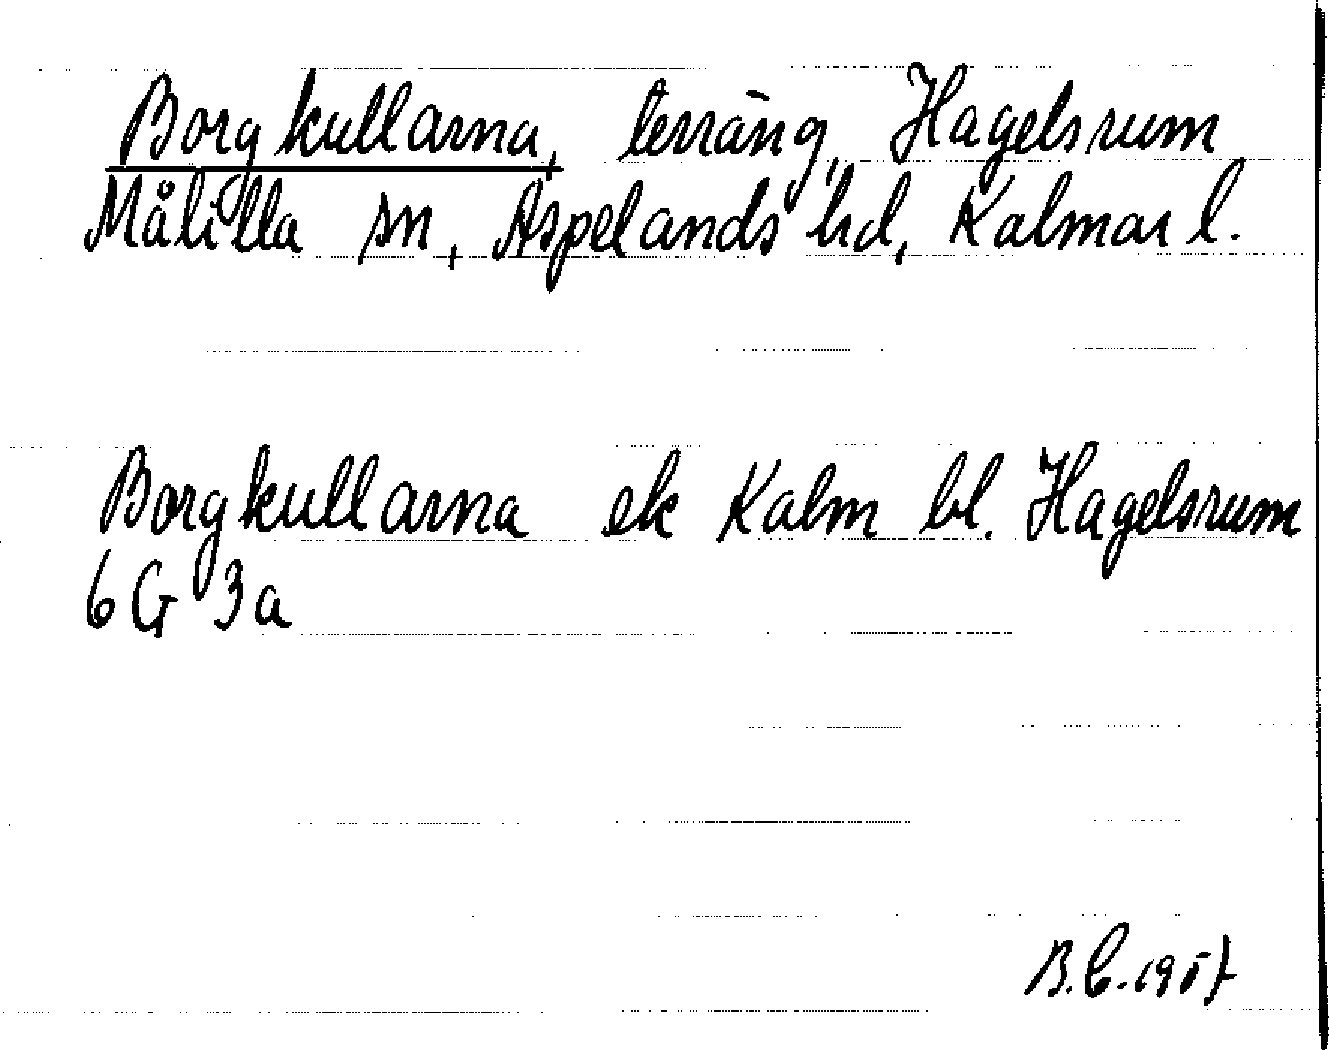 Borgkullarna, terräng, Hagelsrum
Målilla sn, Aspelands hd, Kalmar l.
Borgkullarna ek Kalm bl. Hagelsrum
6 G 3a
B.C. 1957